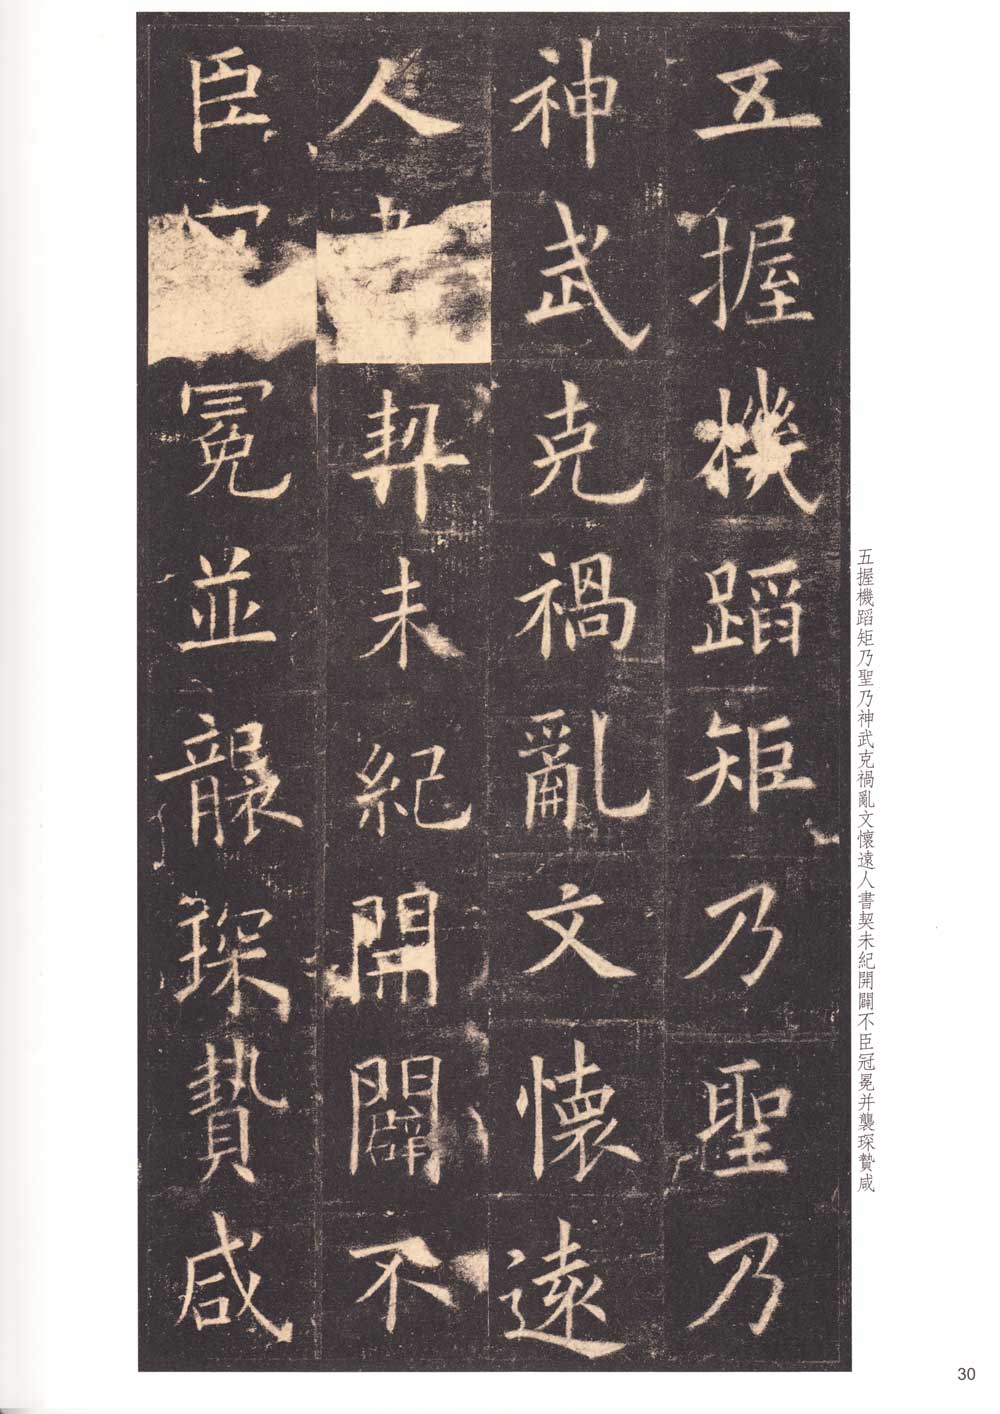 五握機蹈矩乃聖乃
神武克禍亂文懷遠
人書契未紀開闢不
臣冠冕並襲琛贄咸
五握機蹈矩乃聖乃神武克禍亂文懷遠人書契未紀開闢不臣冠冕并襲琛贄咸
30